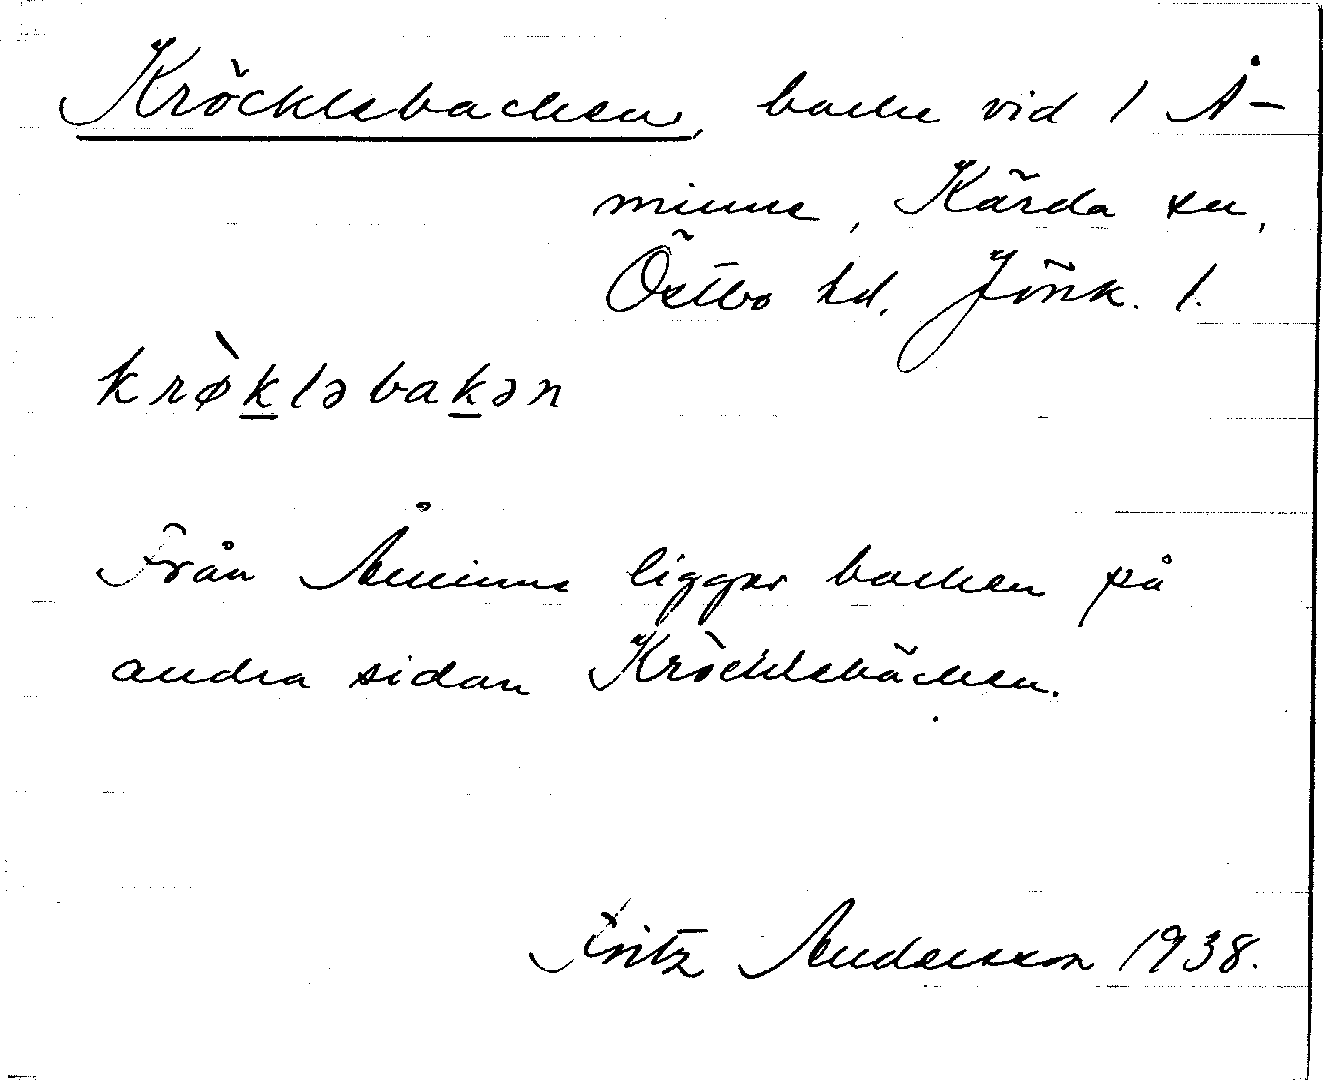 Kröcklebacken, backe vid 1 Å-
minne, Kärda sn,
Östbo hd. Jönk. l.
krø̀k̲ləbak̲ən
Från Åminne ligger backen på
andra sidan Kröcklebäcken.
Fritz Andersson 1938.